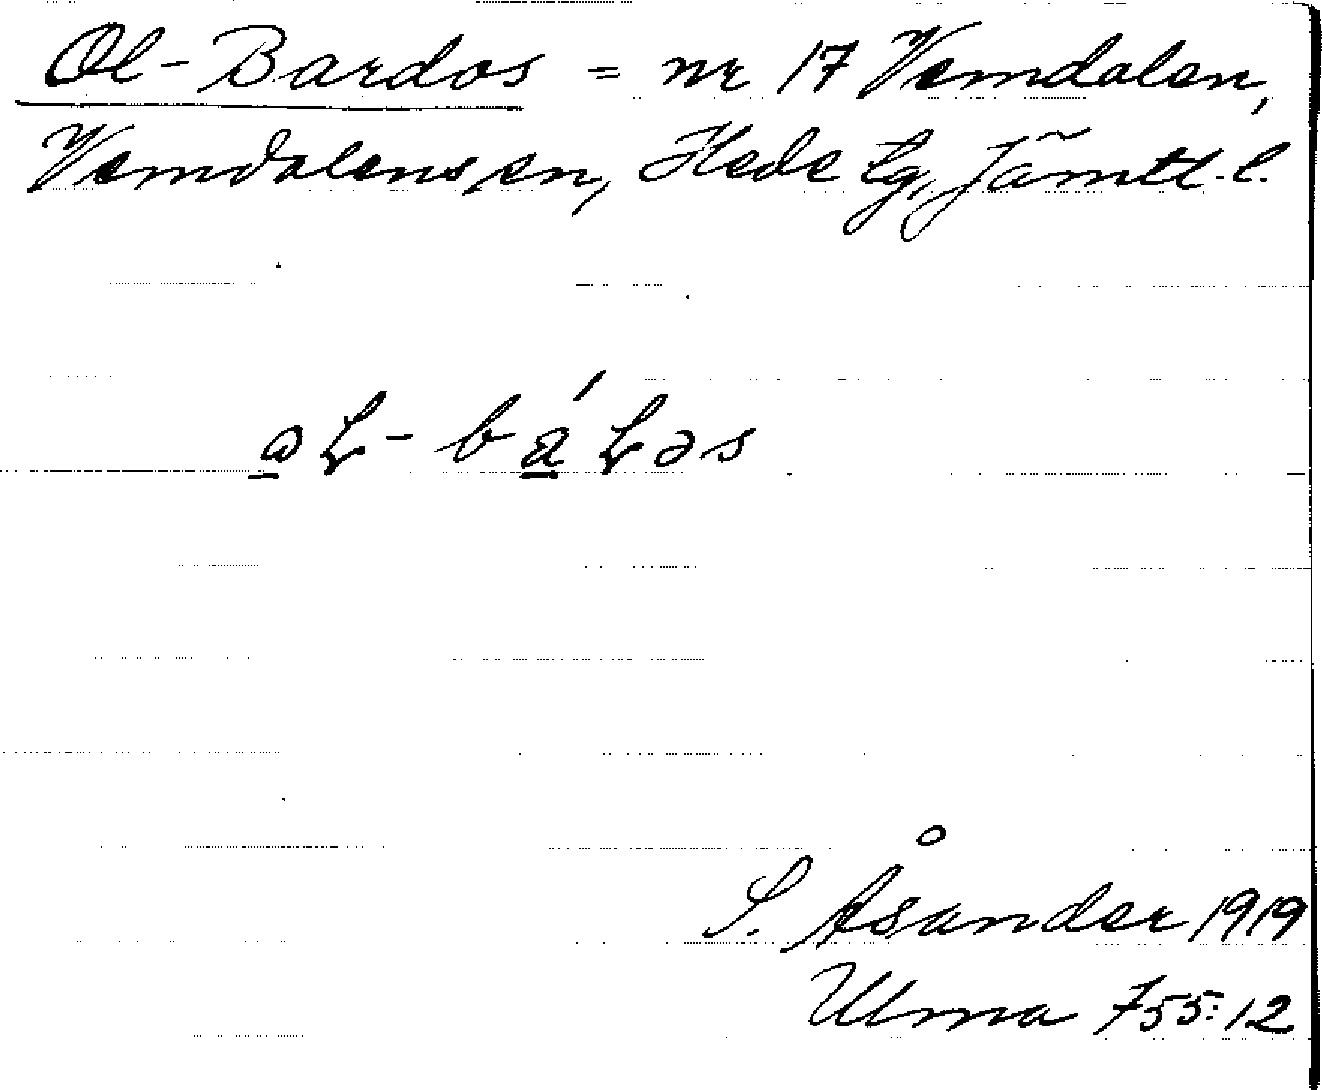 Ol-Bardos = nr 17 Vemdalen,
Vemdalens sn, Hede tg, Jämtl. l.
aɽ-báɽəs
S. Åsander 1919
Ulma 755:12